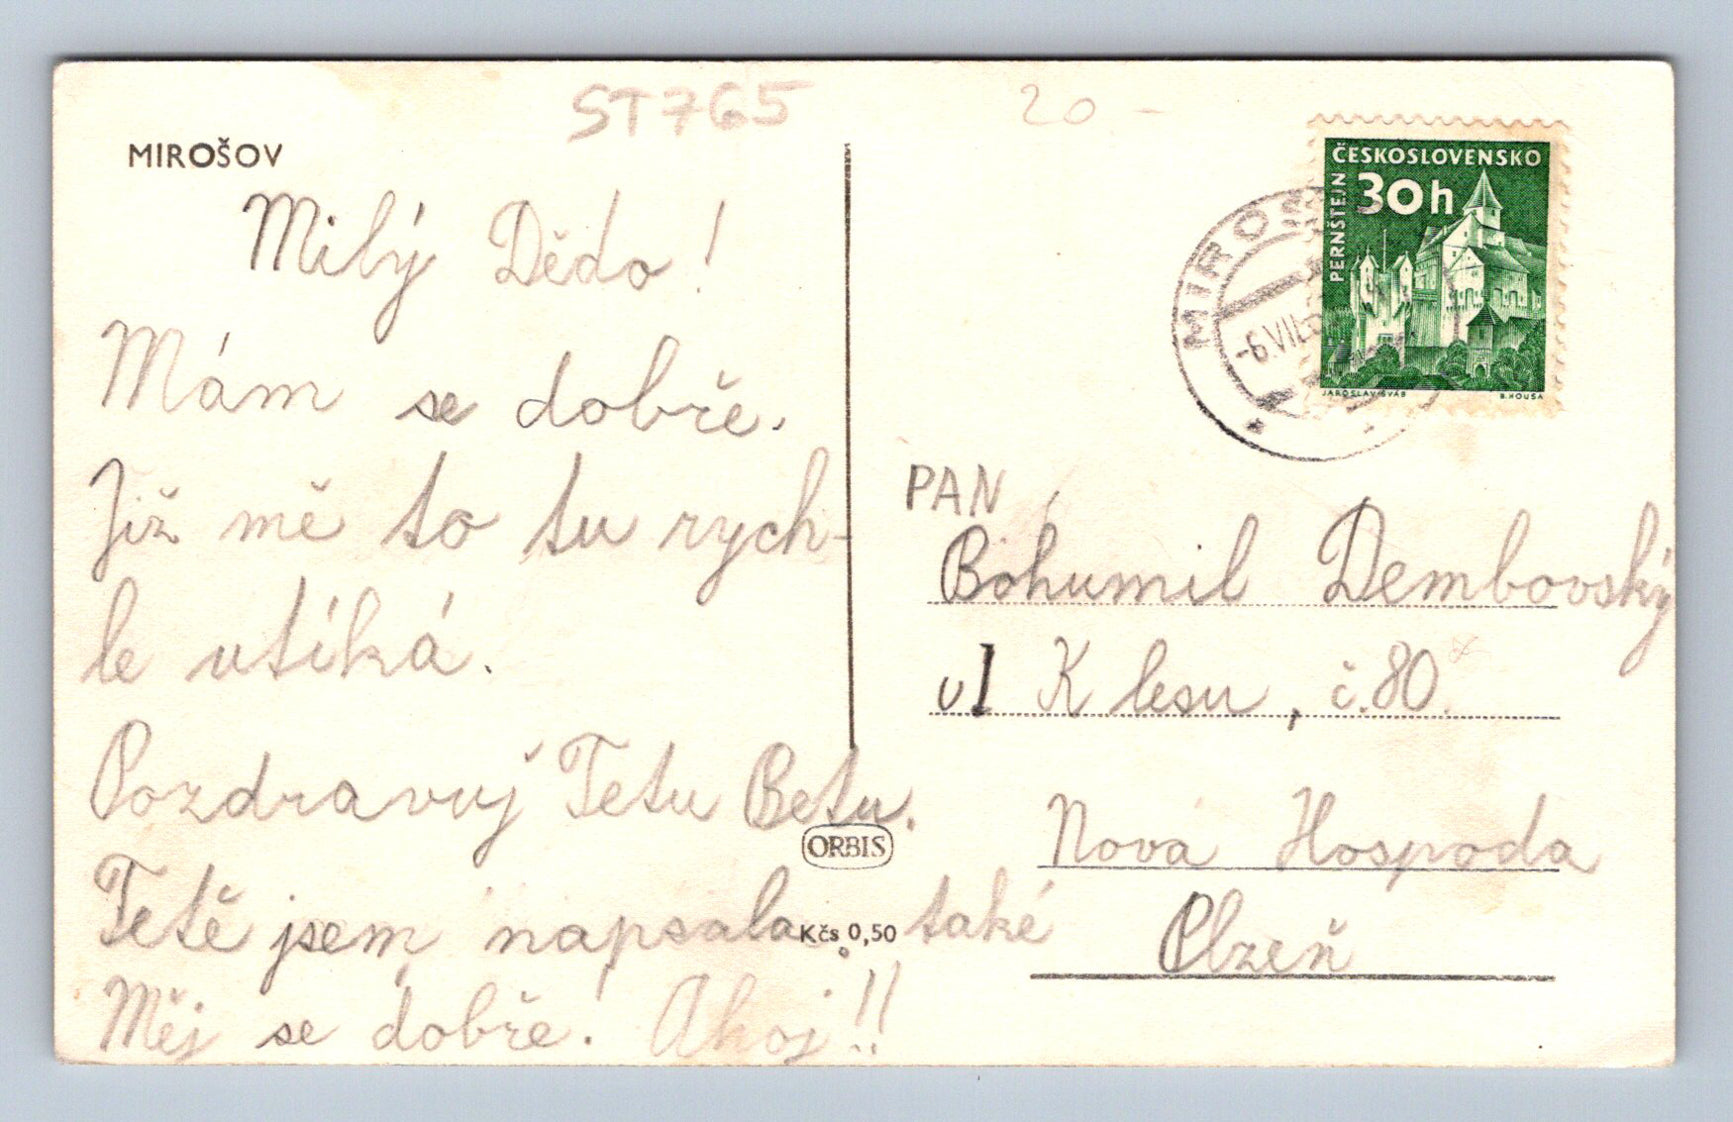 ST765
20 -
MIROŠOV
Milý Dědo!
Mám se dobře.
Již mě to tu rych-
le utíká.
Pozdravuj Tetu Betu.
Tetě jsem napsala také
Měj se dobře. Ahoj!!
ORBIS
Kčs 0,50
ČESKOSLOVENSKO
30h
PERNŠTEJN
JAROSLAV ŠVÁB
B. HOUSA
-6.VII.
PAN
Bohumil Dembovský
ul K lesu, č.80.
Nová Hospoda
Plzeň